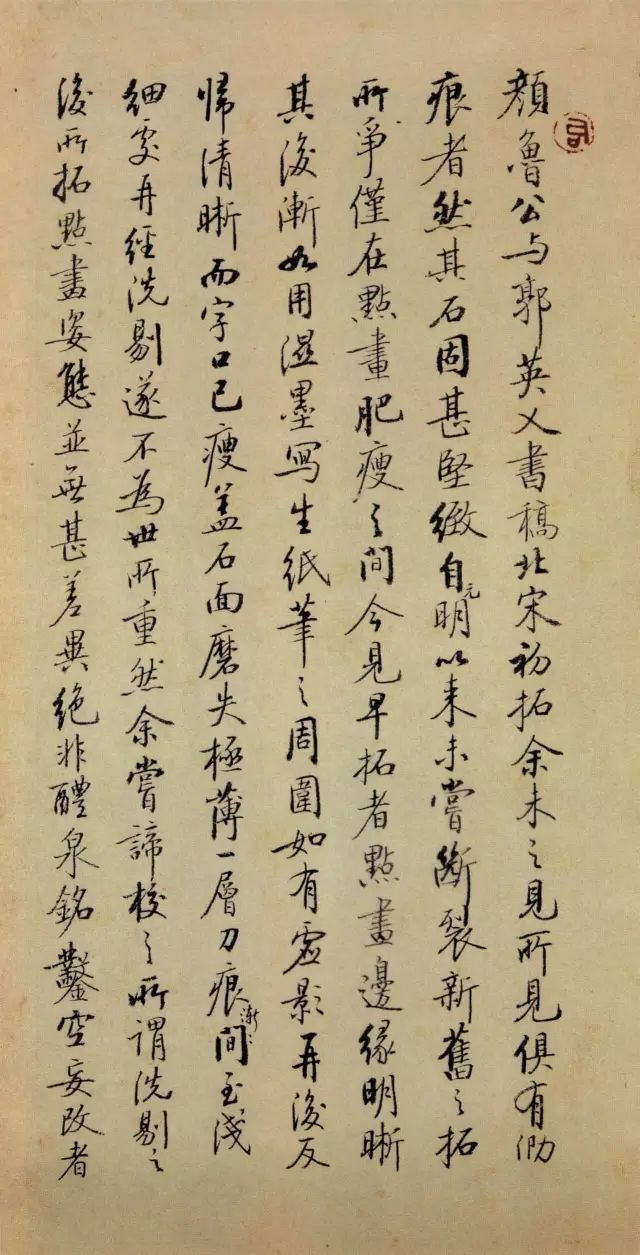 顏魯公与郭英乂書稿北宋初拓余未之見所見俱有泐
痕者然其石固甚堅緻自元明以来未嘗斷裂新舊之拓
所爭僅在點畫肥瘦之間今見早拓者點畫邊緣明晰
其後漸如用濕墨寫生紙筆之周圍如有虛影再後反
帰清晰而字口已瘦盖石面磨失極薄一層刀痕漸間至淺
細夌再經洗剔遂不為世所重然余嘗諦校之所謂洗剔之
後所拓點畫姿態並無甚差異絶非醴泉銘鑿空妄改者